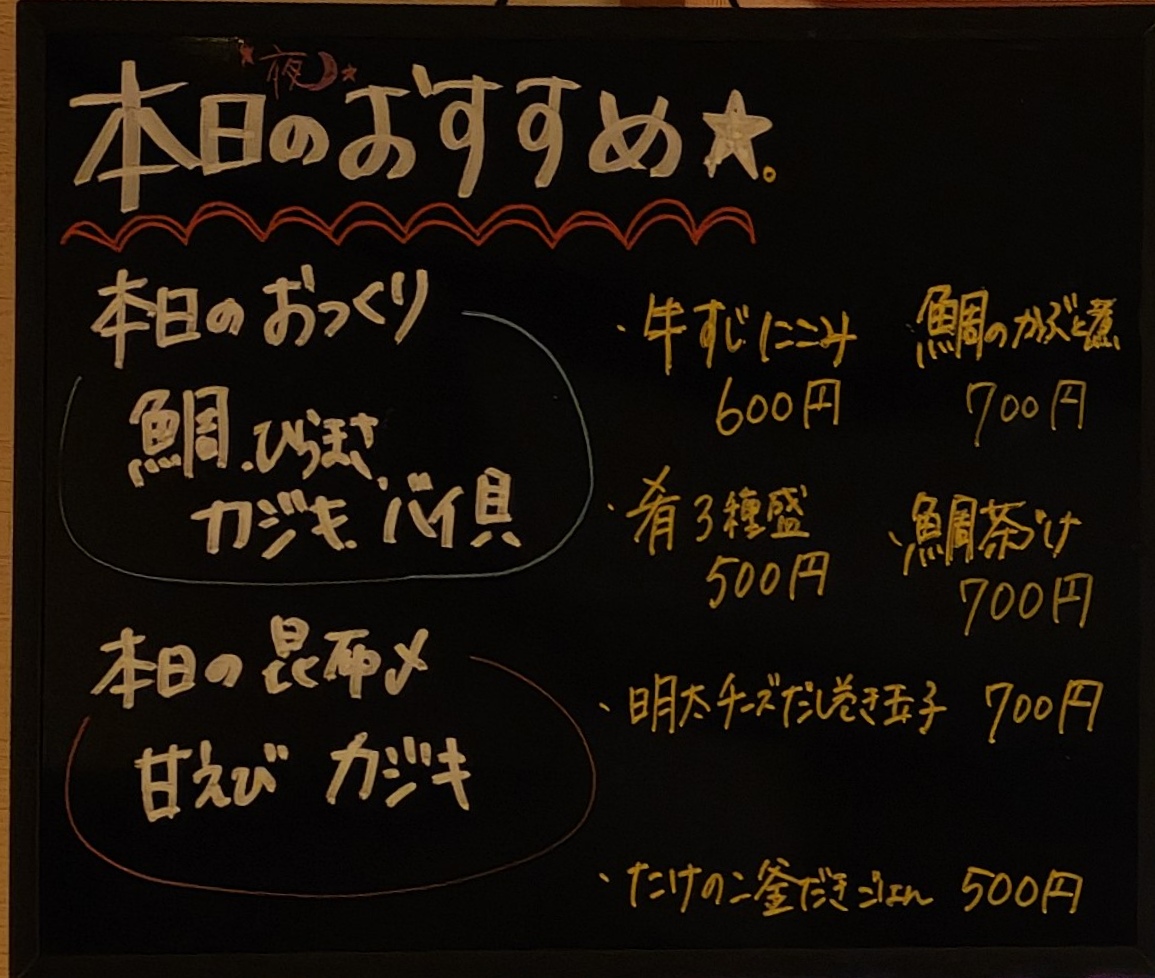 夜
本日のおすすめ★。
本日のおつくり
鯛、ひらまさ、
カジキ、バイ貝
本日の昆布〆
甘えび カジキ
・牛すじにこみ
600円
鯛のかぶと煮
700円
・肴3種盛
500円
・鯛茶づけ
700円
・明太チーズだし巻き玉子 700円
・たけのこ釜だきごはん 500円